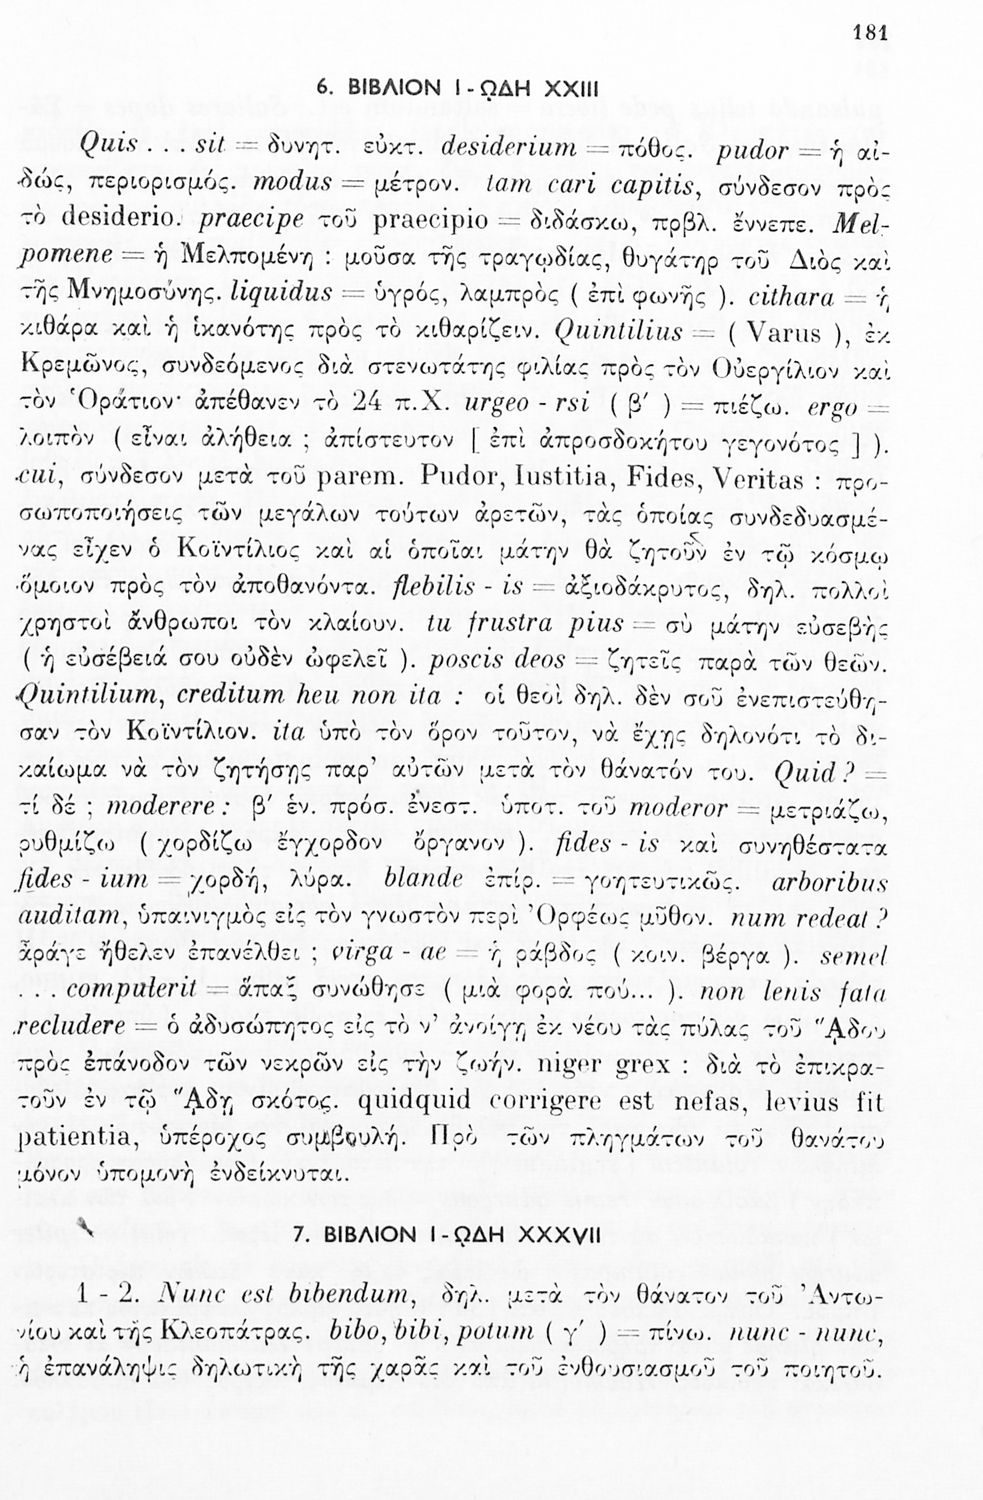 181
6. ΒΙΒΛΙΟΝ Ι - ΩΔΗ XXIII
Quis . . . sit = δυνητ. εὐκτ. desiderium = πόθος. pudor = ἡ αἰ-
δώς, περιορισμός. modus = μέτρον. tam cari capitis, σύνδεσον πρὸς
τὸ desiderio. praecipe τοῦ praecipio = διδάσκω, πρβλ. ἔννεπε. Mel-
pomene = ἡ Μελπομένη : μοῦσα τῆς τραγῳδίας, θυγάτηρ τοῦ Διὸς καὶ
τῆς Μνημοσύνης. liquidus = ὑγρός, λαμπρὸς ( ἐπὶ φωνῆς ). cithara = ἡ
κιθάρα καὶ ἡ ἱκανότης πρὸς τὸ κιθαρίζειν. Quintilius = ( Varus ), ἐκ
Κρεμῶνος, συνδεόμενος διὰ στενωτάτης φιλίας πρὸς τὸν Οὐεργίλιον καὶ
τὸν Ὁράτιον· ἀπέθανεν τὸ 24 π.Χ. urgeo - rsi ( β' ) = πιέζω. ergo =
λοιπὸν ( εἶναι ἀλήθεια ; ἀπίστευτον [ ἐπὶ ἀπροσδοκήτου γεγονότος ] ).
cui, σύνδεσον μετὰ τοῦ parem. Pudor, Iustitia, Fides, Veritas : προ-
σωποποιήσεις τῶν μεγάλων τούτων ἀρετῶν, τὰς ὁποίας συνδεδυασμέ-
νας εἶχεν ὁ Κοϊντίλιος καὶ αἱ ὁποῖαι μάτην θὰ ζητοῦν ἐν τῷ κόσμῳ
ὅμοιον πρὸς τὸν ἀποθανόντα. flebilis - is = ἀξιοδάκρυτος, δηλ. πολλοὶ
χρηστοὶ ἄνθρωποι τὸν κλαίουν. tu frustra pius = σὺ μάτην εὐσεβὴς
( ἡ εὐσέβειά σου οὐδὲν ὠφελεῖ ). poscis deos = ζητεῖς παρὰ τῶν θεῶν.
Quintilium, creditum heu non ita : οἱ θεοὶ δηλ. δὲν σοῦ ἐνεπιστεύθη-
σαν τὸν Κοϊντίλιον. ita ὑπὸ τὸν ὅρον τοῦτον, νὰ ἔχῃς δηλονότι τὸ δι-
καίωμα νὰ τὸν ζητήσῃς παρ' αὐτῶν μετὰ τὸν θάνατόν του. Quid ? =
τί δέ ; moderere : β' ἑν. πρόσ. ἐνεστ. ὑποτ. τοῦ moderor = μετριάζω,
ρυθμίζω ( χορδίζω ἔγχορδον ὄργανον ). fides - is καὶ συνηθέστατα
fides - ium = χορδή, λύρα. blande ἐπίρ. = γοητευτικῶς. arboribus
auditam, ὑπαινιγμὸς εἰς τὸν γνωστὸν περὶ Ὀρφέως μῦθον. num redeat ?
ἆράγε ἤθελεν ἐπανέλθει ; virga - ae = ἡ ράβδος ( κοιν. βέργα ). semel
. . . compulerit = ἅπαξ συνώθησε ( μιὰ φορὰ πού... ). non lenis fata
recludere = ὁ ἀδυσώπητος εἰς τὸ ν' ἀνοίγῃ ἐκ νέου τὰς πύλας τοῦ ᾍδου
πρὸς ἐπάνοδον τῶν νεκρῶν εἰς τὴν ζωήν. niger grex : διὰ τὸ ἐπικρα-
τοῦν ἐν τῷ ᾍδῃ σκότος. quidquid corrigere est nefas, levius fit
patientia, ὑπέροχος συμβουλή. Πρὸ τῶν πληγμάτων τοῦ θανάτου
μόνον ὑπομονὴ ἐνδείκνυται.
7. ΒΙΒΛΙΟΝ Ι - ΩΔΗ XXXVII
1 - 2. Nunc est bibendum, δηλ. μετὰ τὸν θάνατον τοῦ Ἀντω-
νίου καὶ τῆς Κλεοπάτρας. bibo, bibi, potum ( γ' ) = πίνω. nunc - nunc,
ἡ ἐπανάληψις δηλωτικὴ τῆς χαρᾶς καὶ τοῦ ἐνθουσιασμοῦ τοῦ ποιητοῦ.